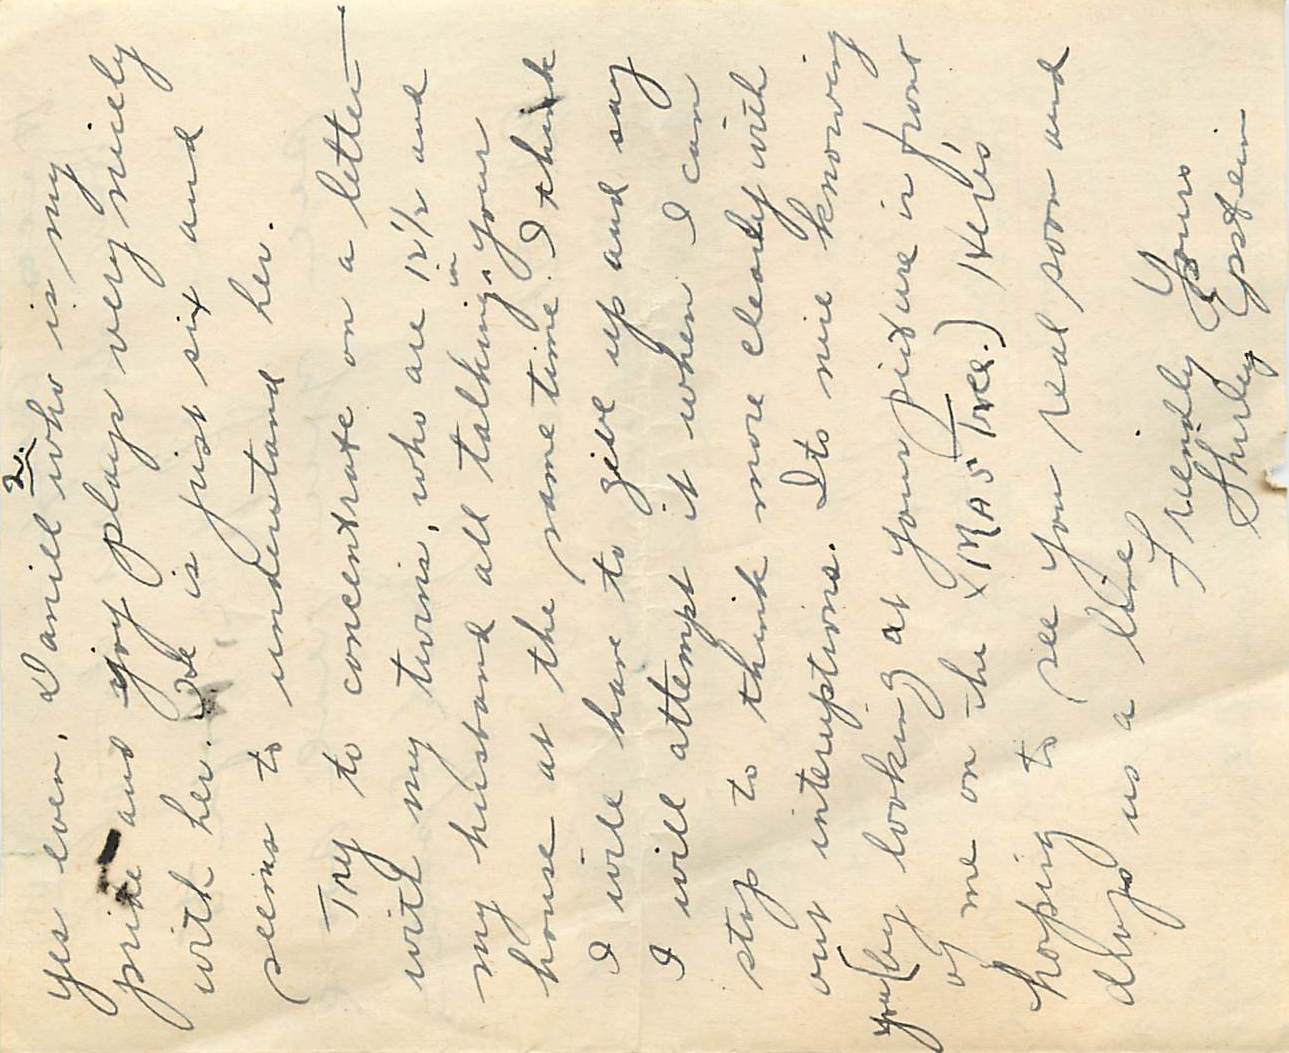 2.
yes even, Daniel who is my
pride and joy plays very nicely
with her. He is just six and
seems to understand her.
Try to concentrate on a letter —
with my twins, who are 12 1/2 and
my husband all talking in your
house at the same time. I think
I will have to give up and say
I will attempt it when I can
stop to think more clearly with
out interuptions. Its nice knowing
you (by looking at your picture in front
of me on the XMAS Tree.) Here's
hoping to see you real soon and
drop us a line
Friendly Yours
Shirley Epstein